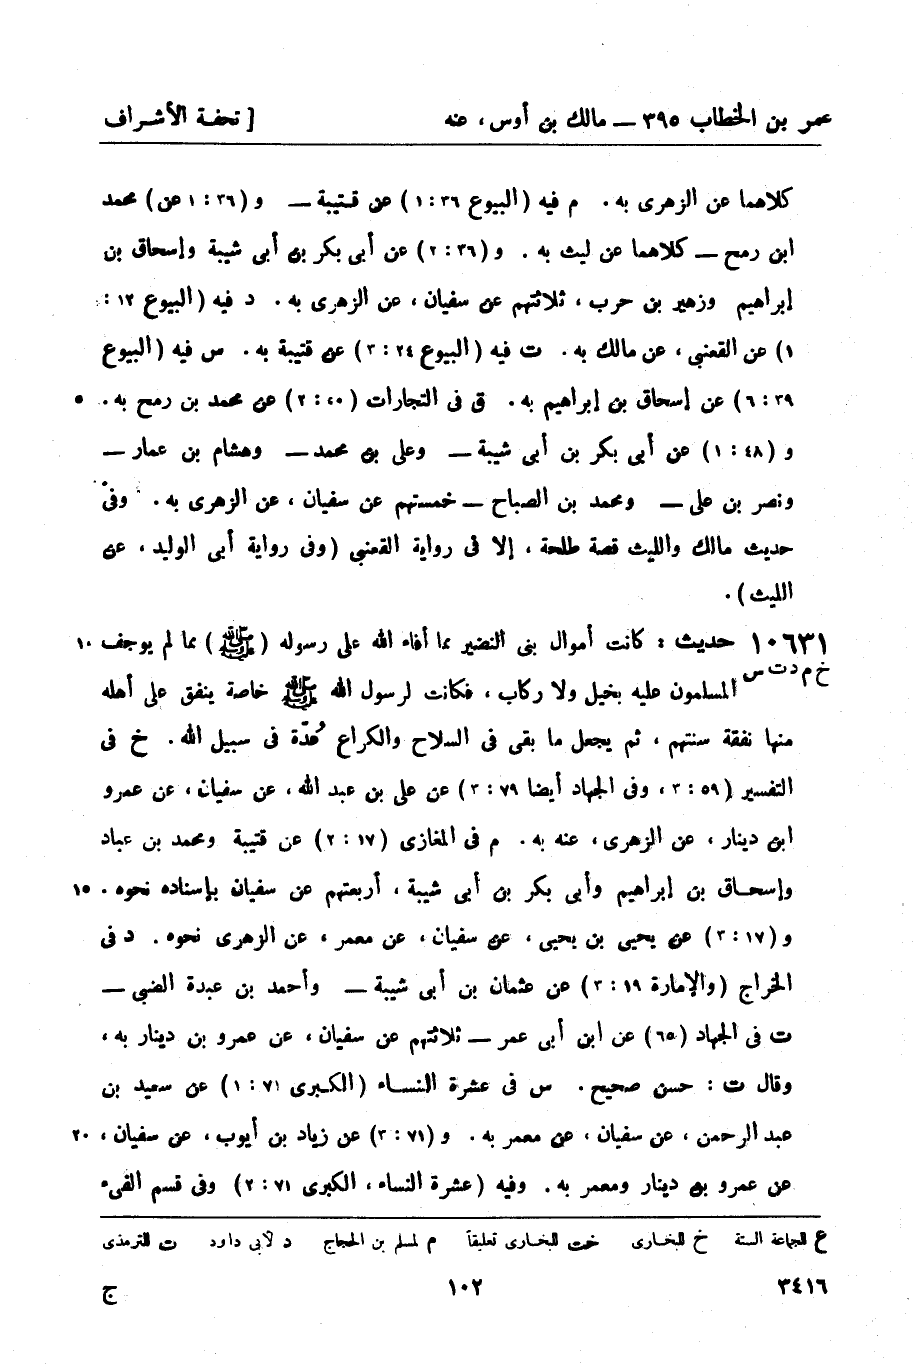 عمر بن الخطاب ٣٩٥ ــ مالك بن أوس ، عنه [ تحفة الأشراف
كلاهما عن الزهرى به . م فيه (البيوع ٣٦ : ١) عن قتيبة ــ و (٣٦ : ١ عن) محمد
ابن رمح ــ كلاهما عن ليث به . و (٣٦ : ٢) عن أبى بكر بن أبى شيبة وإسحاق بن
إبراهيم وزهير بن حرب ، ثلاثتهم عن سفيان ، عن الزهرى به . د فيه (البيوع ١٢ :
١) عن القعنبى ، عن مالك به . ت فيه (البيوع ٢٤ : ٣) عن قتيبة به . س فيه (البيوع
٣٩ : ٦) عن إسحاق بن إبراهيم به . ق فى التجارات (٤٠ : ٢) عن محمد بن رمح به . ٥
و (٤٨ : ١) عن أبى بكر بن أبى شيبة ــ وعلى بن محمد ــ وهشام بن عمار ــ
ونصر بن على ــ ومحمد بن الصباح ــ خمستهم عن سفيان ، عن الزهرى به . وفى
حديث مالك والليث قصة طلحة ، إلا فى رواية القعنبى (وفى رواية أبى الوليد ، عن
الليث) .
١٠٦٣١ حديث : كانت أموال بنى النضير مما أفاء الله على رسوله (ﷺ) مما لم يوجف ١٠
خ م د ت س المسلمون عليه بخيل ولا ركاب ، فكانت لرسول الله ﷺ خاصة ينفق على أهله
منها نفقة سنتهم ، ثم يجعل ما بقى فى السلاح والكراع عُدّة فى سبيل الله . خ فى
التفسير (٥٩ : ٣ ، وفى الجهاد أيضا ٧٩ : ٣) عن على بن عبد الله ، عن سفيان ، عن عمرو
ابن دينار ، عن الزهرى ، عنه به . م فى المغازى (١٧ : ٢) عن قتيبة ومحمد بن عباد
وإسحاق بن إبراهيم وأبى بكر بن أبى شيبة ، أربعتهم عن سفيان بإسناده نحوه . ١٥
و (١٧ : ٣) عن يحيى بن يحيى ، عن سفيان ، عن معمر ، عن الزهرى نحوه . د فى
الخراج (والإمارة ١٩ : ٣) عن عثمان بن أبى شيبة ــ وأحمد بن عبدة الضبى ــ
ت فى الجهاد (٦٥) عن ابن أبى عمر ــ ثلاثتهم عن سفيان ، عن عمرو بن دينار به ،
وقال ت : حسن صحيح . س فى عشرة النساء (الكبرى ٧١ : ١) عن سعيد بن
عبد الرحمن ، عن سفيان ، عن معمر به . و (٧١ : ٣) عن زياد بن أيوب ، عن سفيان ، ٢٠
عن عمرو بن دينار ومعمر به . وفيه (عشرة النساء ، الكبرى ٧١ : ٢) وفى قسم الفىء
ع للجماعة الستة خ للبخارى خت للبخارى تعليقاً م لمسلم بن الحجاج د لأبى داود ت للترمذى
٣٤١٦ ١٠٢ ج